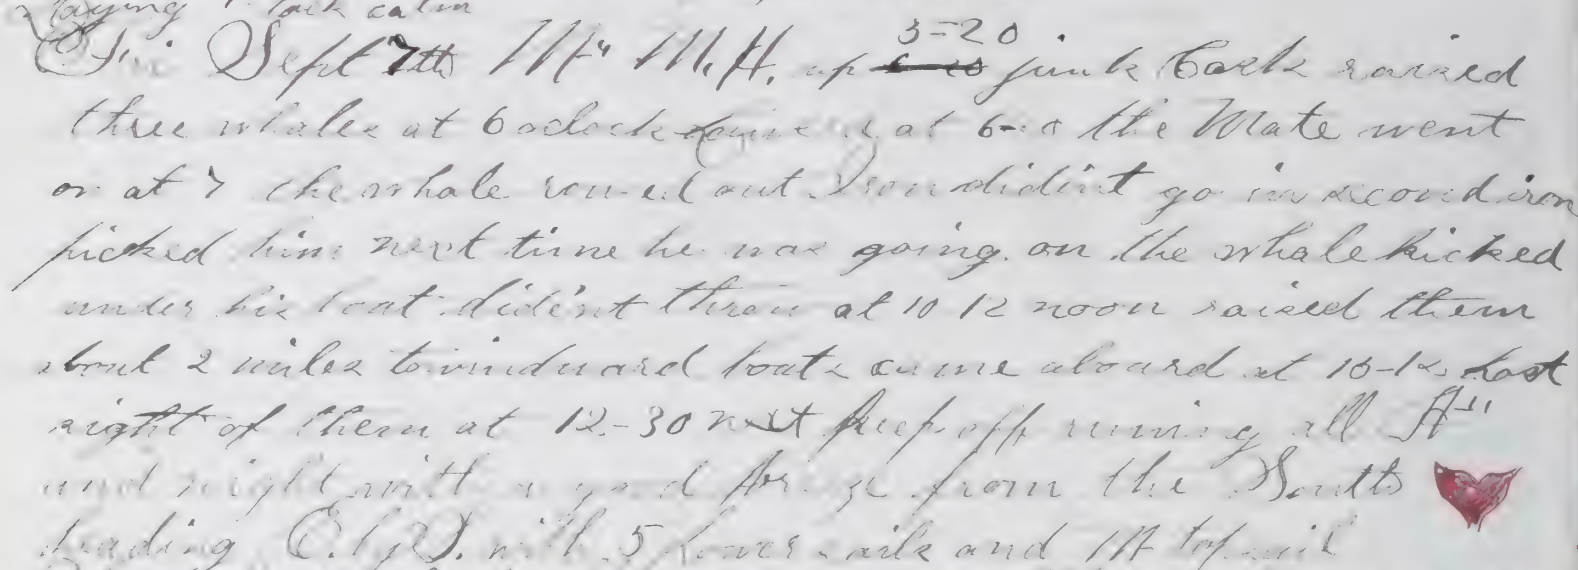 laying back calm
Fri Sept 7th M" M.H. up 3=20 junk Cask raised
three whales at 6 oclock at the Mate went
on at 7 the whale out Iron didint go in second iron
picked him next time he was going on the whale kicked
under his boat didint throw at 10 12 noon raised them
about 2 miles to windward boats came aboard at 10-12 Lost
sight of them at 12-30 next keep off runing all A"
and night with a good from the South
heading E. by S. with 5 lower sails and M topsail